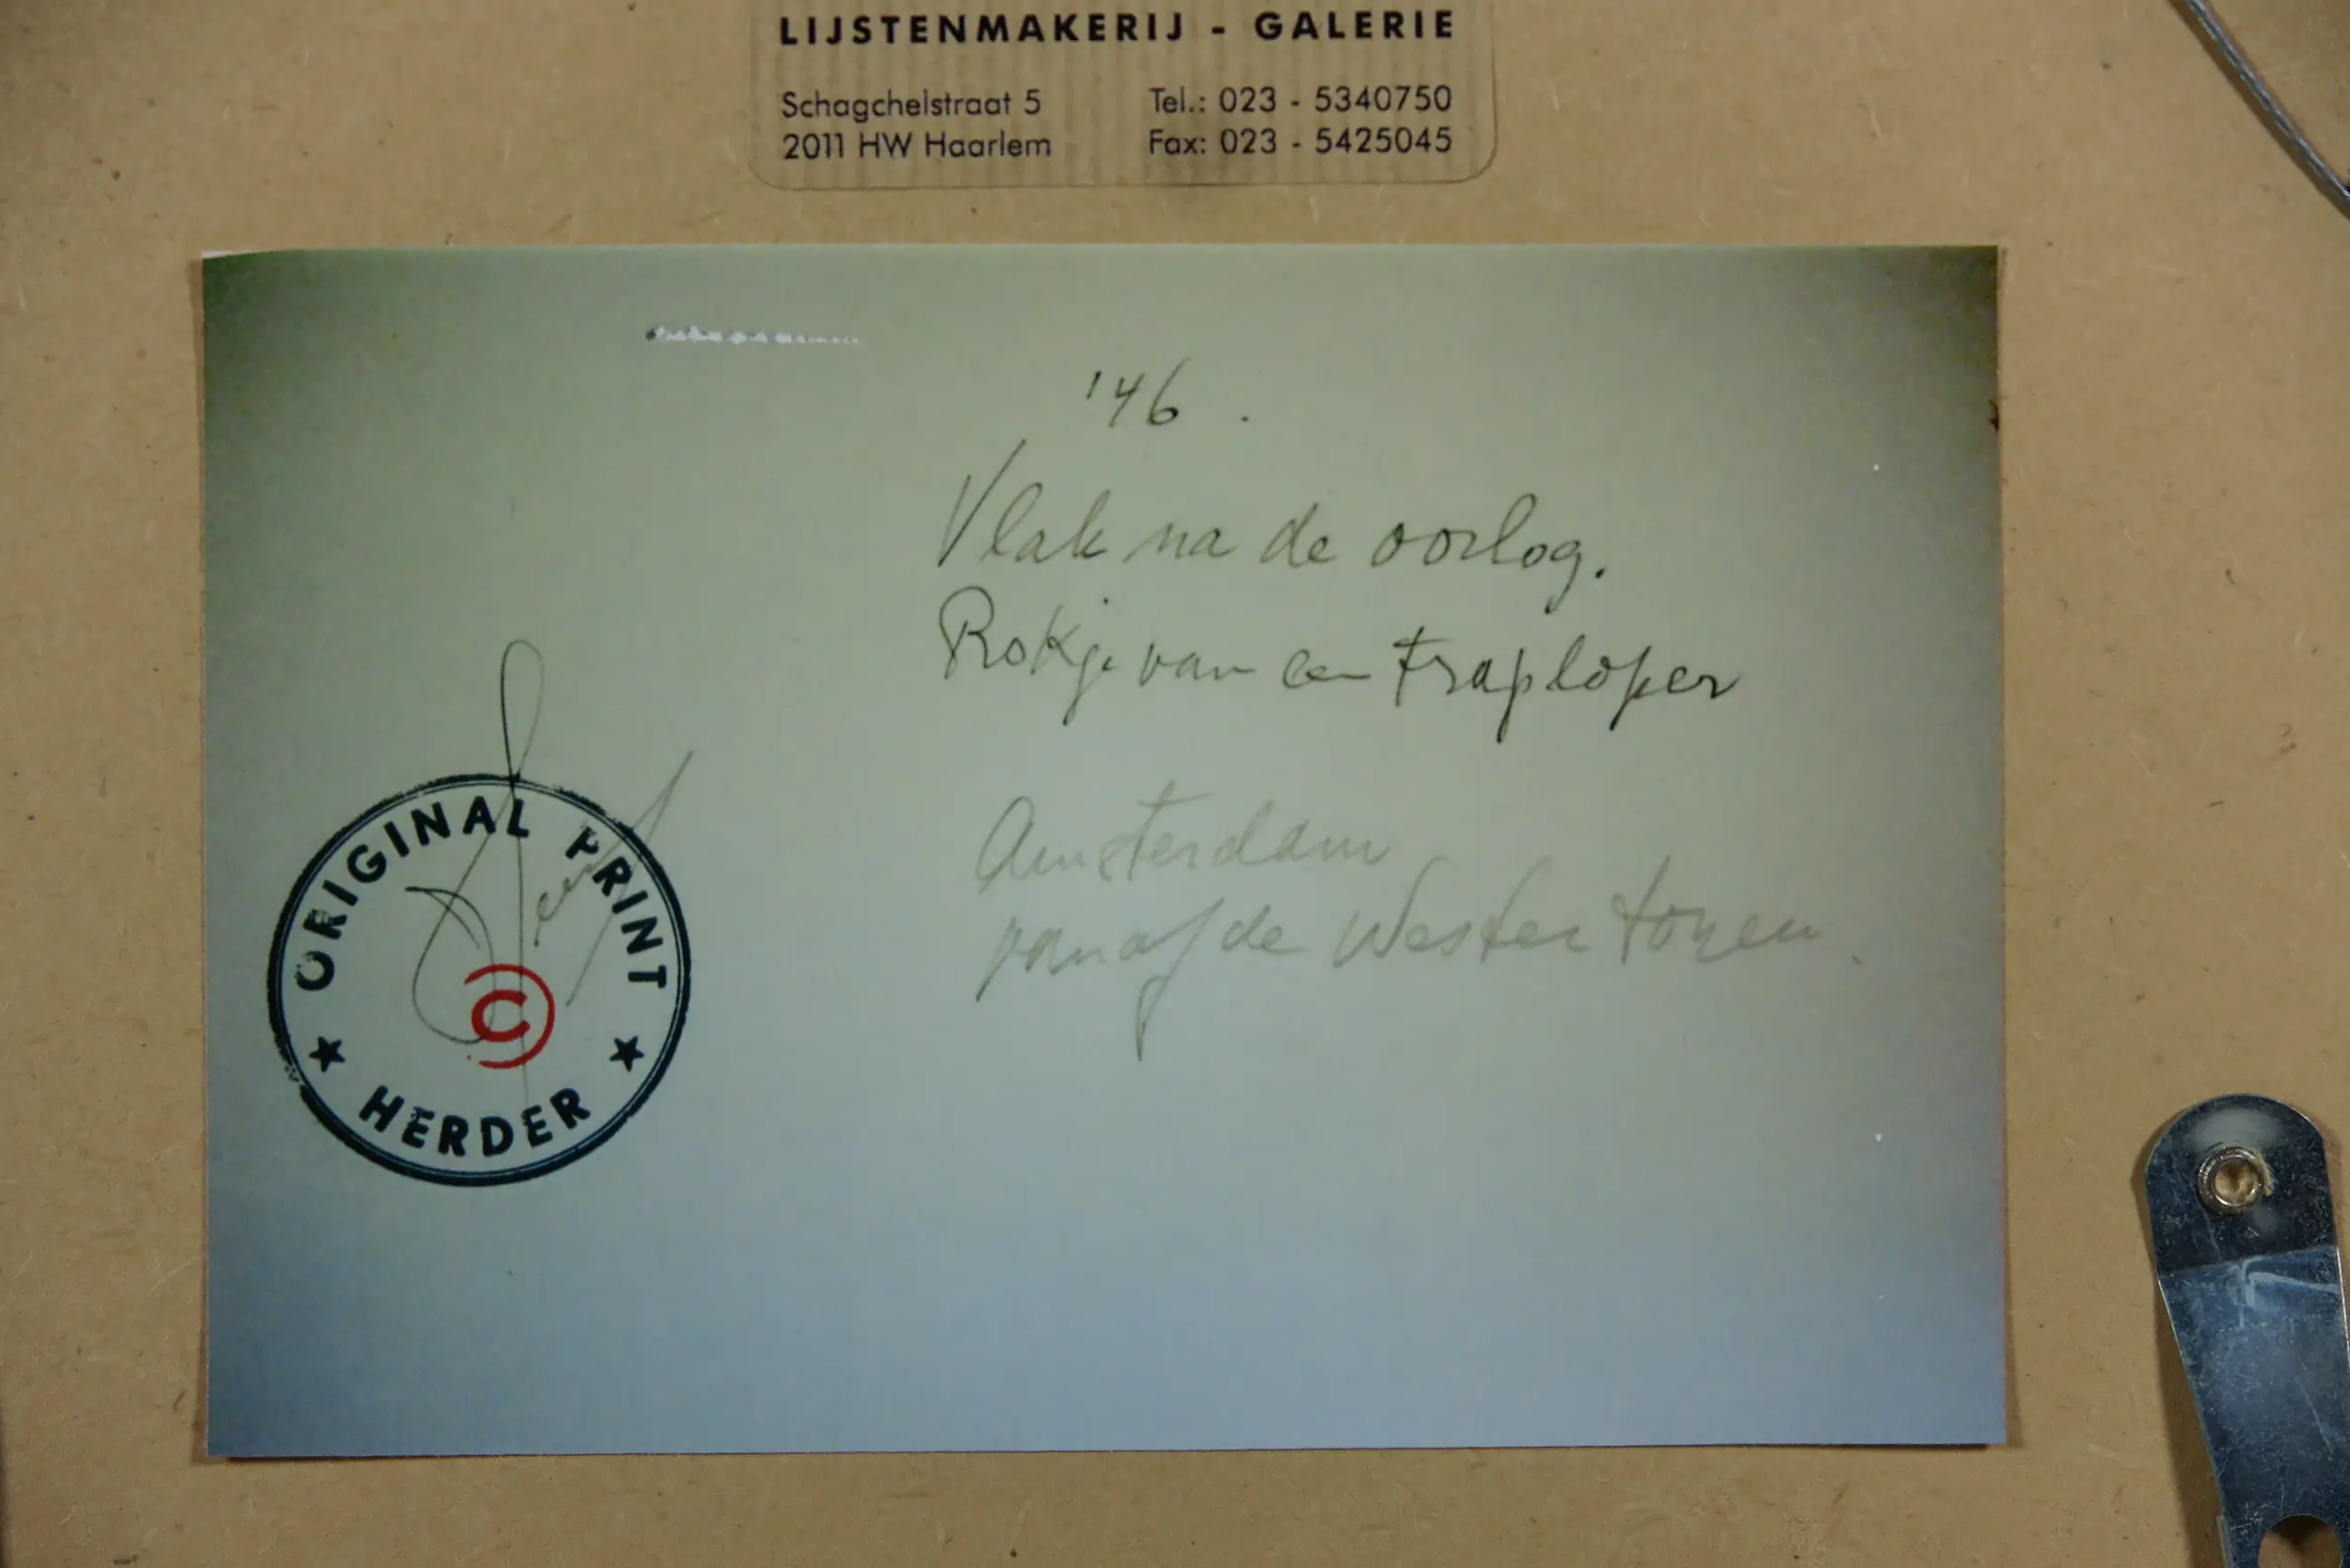 LIJSTENMAKERIJ - GALERIE
Schagchelstraat 5 Tel.: 023 - 5340750
2011 HW Haarlem Fax: 023 - 5425045
'46.
Vlak na de oorlog.
Rokje van een traploper
Amsterdam
vanaf de Wester toren.
ORIGINAL PRINT
©
★ HERDER ★